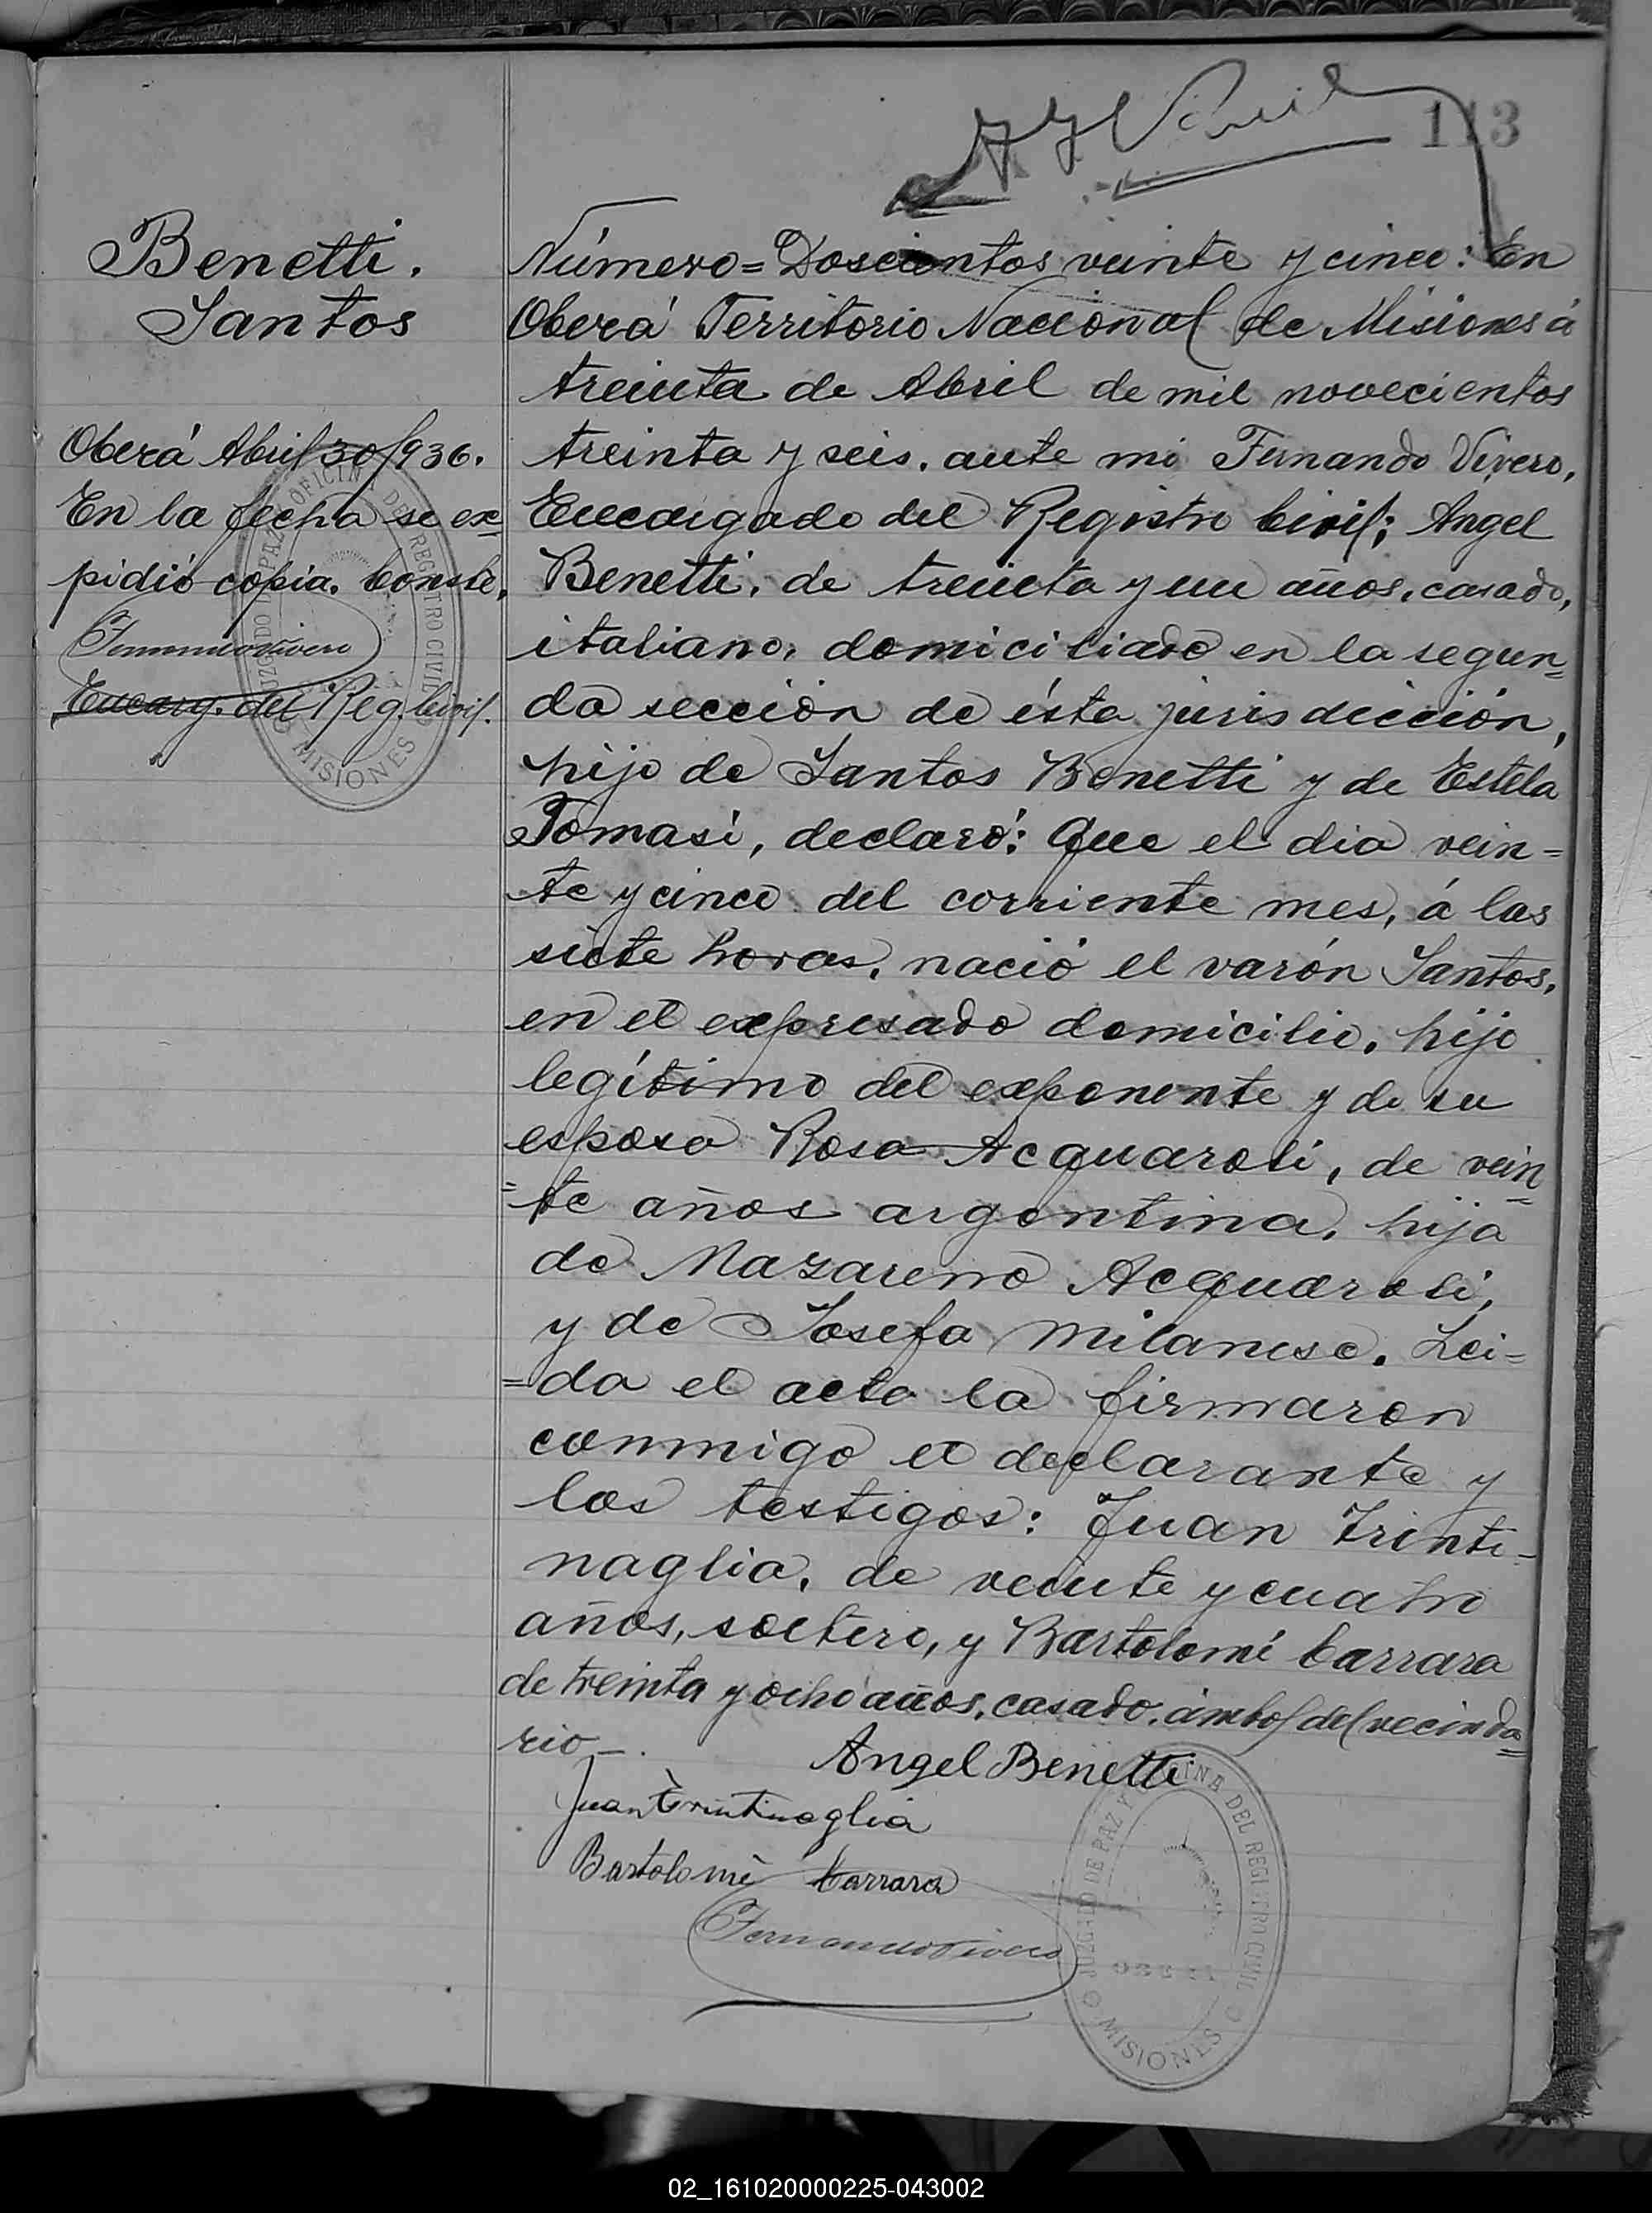 113
Benetti.
Santos
Oberá Abril 30/936.
En la fecha se ex
pidió copia. Conste.
Fernando Vivero
Encarg. del Reg. Civil.
Número = Doscientos veinte y cinco: En
Oberá Territorio Nacional de Misiones á
treinta de Abril de mil novecientos
treinta y seis, ante mi Fernando Vivero,
Encargado del Registro Civil; Angel
Benetti, de treinta y un años, casado,
italiano, domiciliado en la segun=
da sección de ésta jurisdicción,
hijo de Santos Benetti y de Estela
Tomasi, declaró: Que el dia vein=
te y cinco del corriente mes, á las
siete horas, nació el varón Santos,
en el expresado domicilio, hijo
legítimo del exponente y de su
esposa Rosa Acquaroli, de vein
=te años argentina, hija
de Nazareno Acquaroli,
y de Josefa Milanese. Lei=
=da el acta la firmaron
conmigo el declarante y
los testigos: Juan Trinti-
naglia, de veinte y cuatro
años, soltero, y Bartolomé Carrara
de treinta y ocho años, casado, ámbos del vecinda=
rio-.
Angel Benetti
Juan Trintinaglia
Bartolomé Carrara
Fernando Vivero
JUZGADO DE PAZ Y OFICINA DEL REGISTRO CIVIL
MISIONES
02_161020000225-043002